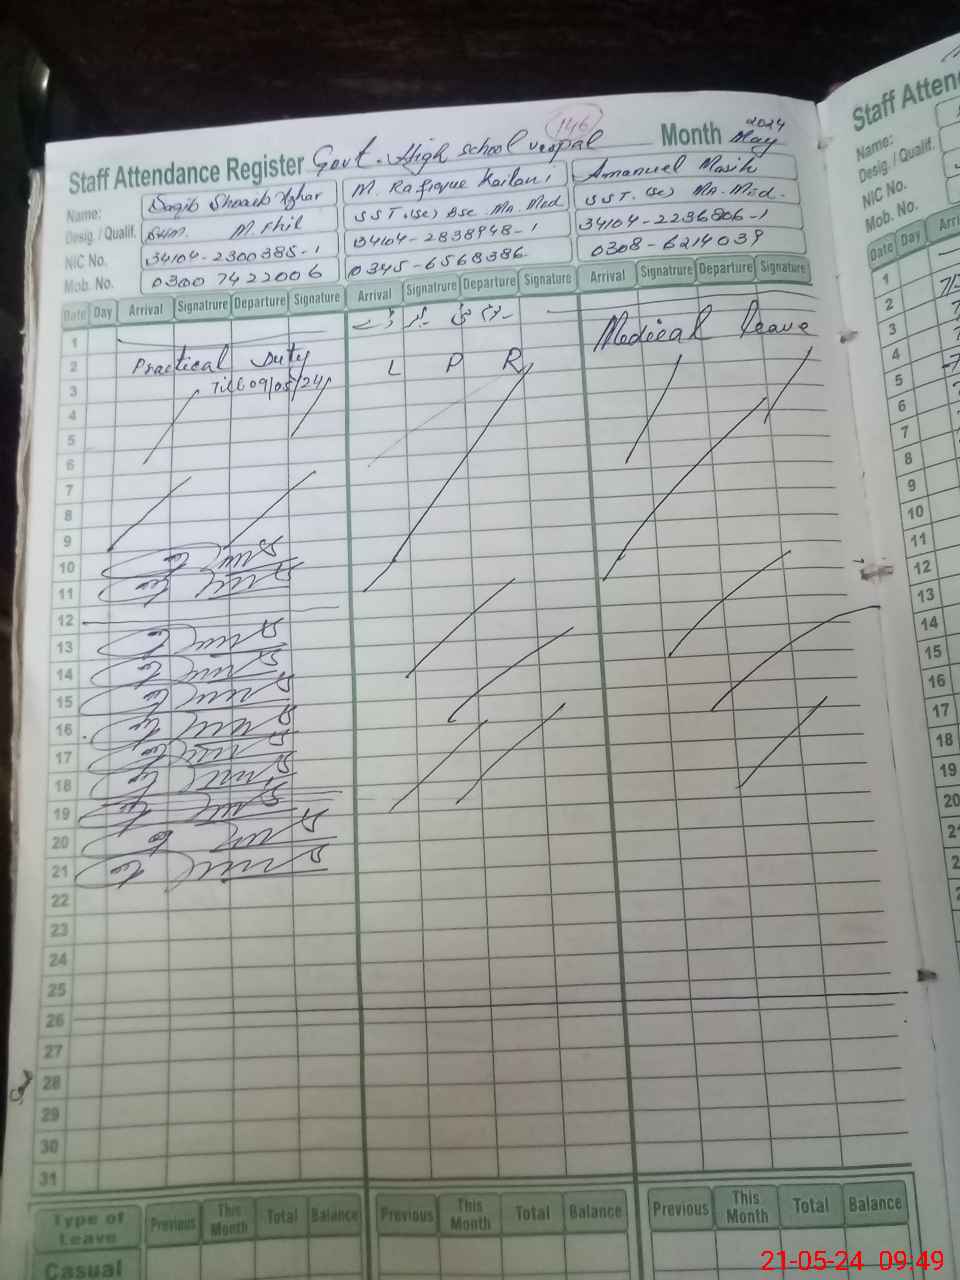 146
Staff Attendance Register Govt. High school Month May 2024
Name: Saqib Shoaib M. Rafique Amanuel Masih
Desig. / Qualif. M. Phil SST. (Sc) Bsc. Ma. Med SST. (Sc) Ma. Med.
NIC No. 34104-2300385-1 34104-2838948-1 34104-2236806-1
Mob. No. 0300 7422006 0345-6568386 0308-6214039
Date Day Arrival Signatrure Departure Signature Arrival Signatrure Departure Signature Arrival Signatrure Departure Signature
1
2 Practical Duty L P R Medical leave
3 Till 09/05/24
4
5
6
7
8
9
10
11
12
13
14
15
16
17
18
19
20
21
22
23
24
25
26
27
28
29
30
31
Type of Leave Previous This Month Total Balance Previous This Month Total Balance Previous This Month Total Balance
Casual
Staff Atten
Name:
Desig. / Qualif.
NIC No.
Mob. No.
Date Day Arri
1
2
3
4
5
6
7
8
9
10
11
12
13
14
15
16
17
18
19
20
21-05-24 09:49